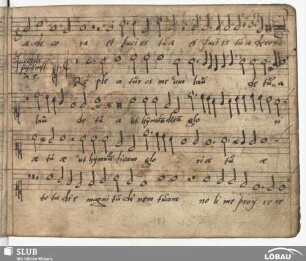 a de cō ra et faci es tu a et faci es tu a decora
Re ple a tur os me um lau de tu a
lau de tu a ut hymnū dicam glo ri
æ tu æ ut hymnū dicam glo riæ tu æ
tota di e magni tu di nem tuam no li me proij ce re
187
SLUB
Wir führen Wissen.
LÖBAU